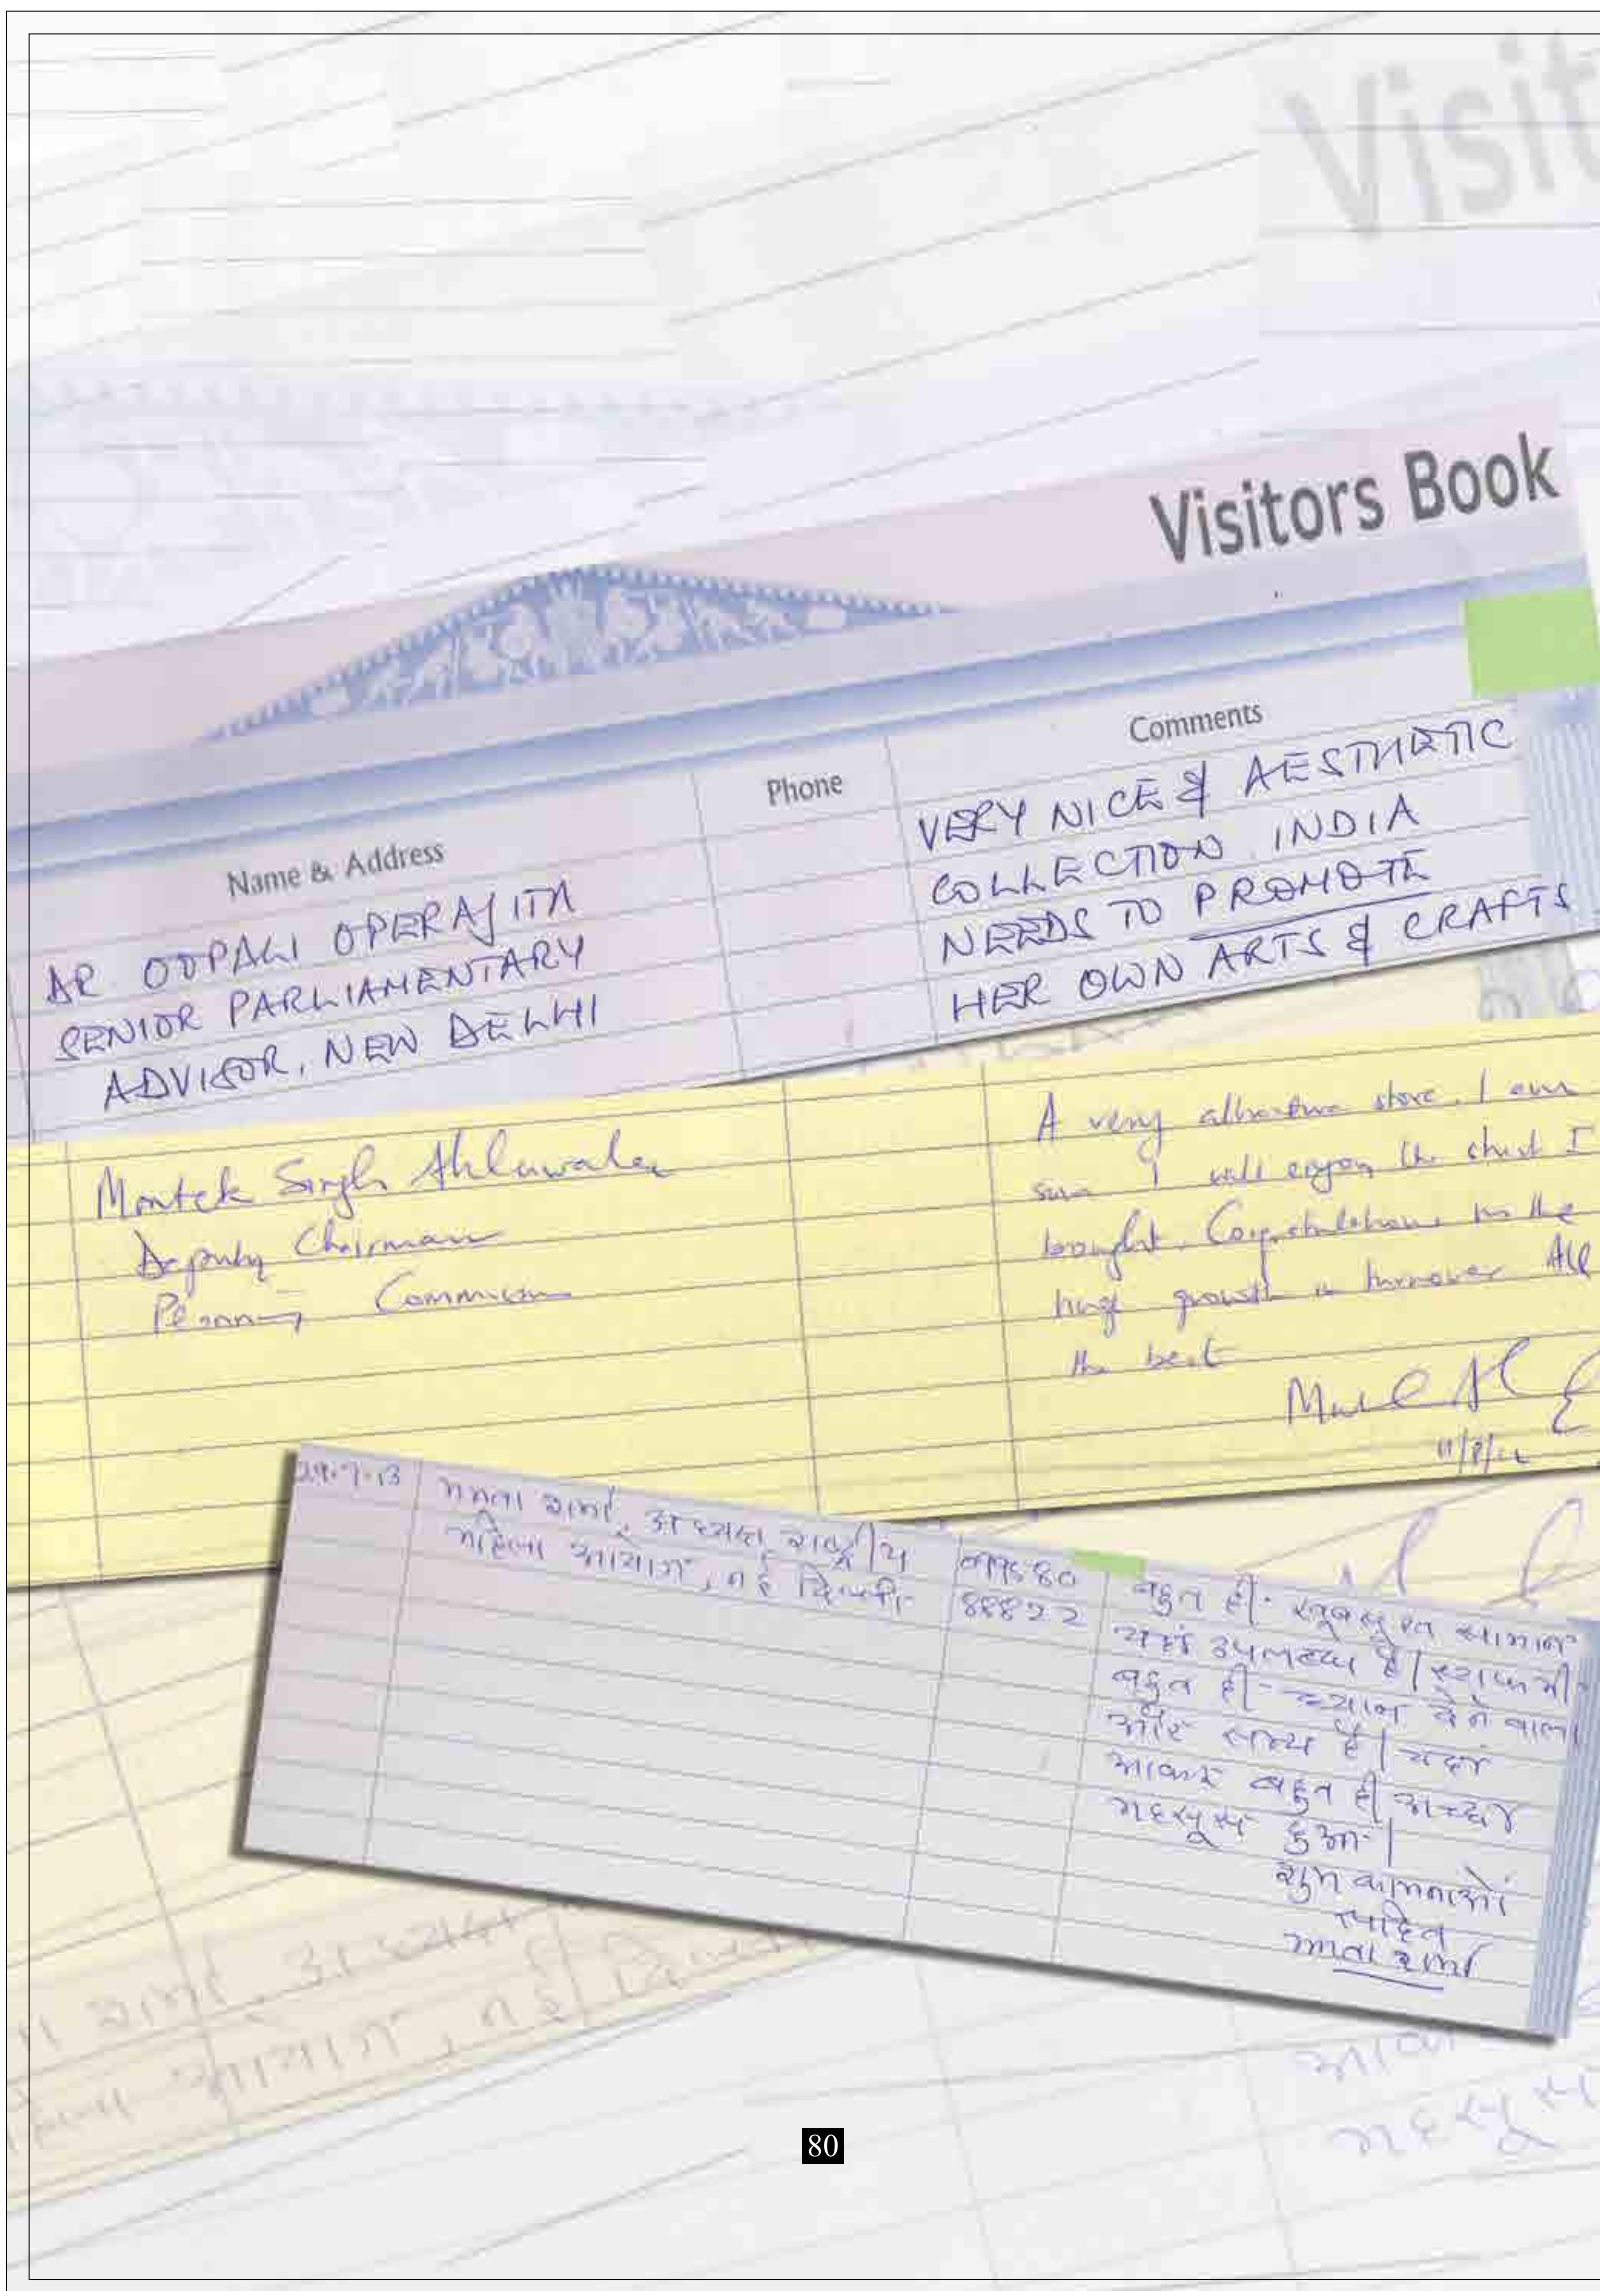 Visit
Visitors Book
Name & Address
Phone
Comments
DR OOPALI OPERAJITA
SENIOR PARLIAMENTARY
ADVISOR, NEW DELHI
VERY NICE & AESTHETIC
COLLECTION. INDIA
NEEDS TO PROMOTE
HER OWN ARTS & CRAFTS
Montek Singh Ahluwalia
Deputy Chairman
Planning Commission
A very attractive store. I am
sure I will enjoy the shirt I
bought. Congratulations on the
huge growth in turnover All
the best
29-7-13
ममता शर्मा, अध्यक्ष, राष्ट्रीय
महिला आयोग, नई दिल्ली
88822
बहुत ही खूबसूरत सामान
यहाँ उपलब्ध है। स्टाफ भी
बहुत ही ध्यान देने वाला
और सभ्य है। यहाँ
आकर बहुत ही अच्छा
महसूस हुआ।
शुभ कामनाओं
सहित
ममता शर्मा
80